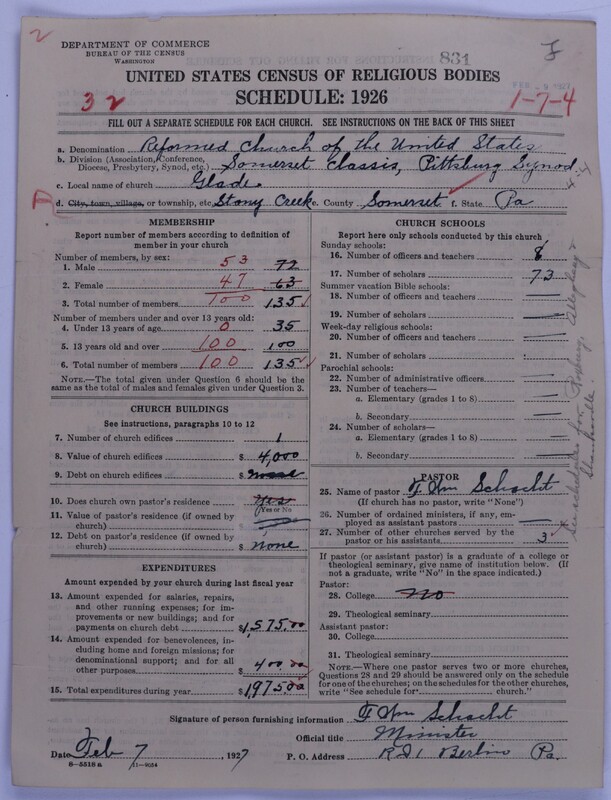 2
DEPARTMENT OF COMMERCE
BUREAU OF THE CENSUS
WASHINGTON
831
UNITED STATES CENSUS OF RELIGIOUS BODIES
32
SCHEDULE: 1926
1-7-4
FILL OUT A SEPARATE SCHEDULE FOR EACH CHURCH. SEE INSTRUCTIONS ON THE BACK OF THIS SHEET
a. Denomination Reformed Church of the United States
b. Division (Association, Conference, Diocese, Presbytery, Synod, etc.) Somerset Classis, Pittsburg Synod
c. Local name of church Glade
d. City, town, village, or township, etc. Stony Creek e. County Somerset f. State Pa
MEMBERSHIP
Report number of members according to definition of
member in your church
Number of members, by sex:
1. Male 53 72
2. Female 47 63
3. Total number of members 100 135
Number of members under and over 13 years old:
4. Under 13 years of age 0 35
5. 13 years old and over 100 100
6. Total number of members 100 135
NOTE.—The total given under Question 6 should be
the same as the total of males and females given under Question 3.
CHURCH BUILDINGS
See instructions, paragraphs 10 to 12
7. Number of church edifices 1
8. Value of church edifices $ 4,000
9. Debt on church edifices $ none
10. Does church own pastor's residence Yes
(Yes or No)
11. Value of pastor's residence (if owned by
church) $
12. Debt on pastor's residence (if owned by
church) $ none
EXPENDITURES
Amount expended by your church during last fiscal year
13. Amount expended for salaries, repairs,
and other running expenses; for im-
provements or new buildings; and for
payments on church debt $1,575.00
14. Amount expended for benevolences, in-
cluding home and foreign missions; for
denominational support; and for all
other purposes $ 400.00
15. Total expenditures during year $1,975.00
CHURCH SCHOOLS
Report here only schools conducted by this church
Sunday schools:
16. Number of officers and teachers 8
17. Number of scholars 73
Summer vacation Bible schools:
18. Number of officers and teachers
19. Number of scholars
Week-day religious schools:
20. Number of officers and teachers
21. Number of scholars
Parochial schools:
22. Number of administrative officers
23. Number of teachers—
a. Elementary (grades 1 to 8)
b. Secondary
24. Number of scholars—
a. Elementary (grades 1 to 8)
b. Secondary
PASTOR
25. Name of pastor F Wm Schacht
(If church has no pastor, write "None")
26. Number of ordained ministers, if any, em-
ployed as assistant pastors
27. Number of other churches served by the
pastor or his assistants 3
If pastor (or assistant pastor) is a graduate of a college or
theological seminary, give name of institution below. (If
not a graduate, write "No" in the space indicated.)
Pastor:
28. College No
29. Theological seminary
Assistant pastor:
30. College
31. Theological seminary
NOTE.—Where one pastor serves two or more churches,
Questions 28 and 29 should be answered only on the schedule
for one of the churches; on the schedules for the other churches,
write "See schedule for church."
Signature of person furnishing information F Wm Schacht
Official title Minister
Date Feb 7, 1927 P. O. Address RD1 Berlin Pa.
8—5518 a 11—9024